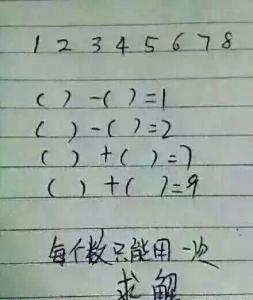 1 2 3 4 5 6 7 8
( ) - ( ) = 1
( ) - ( ) = 2
( ) + ( ) = 7
( ) + ( ) = 9
每个数只能用一次
求解